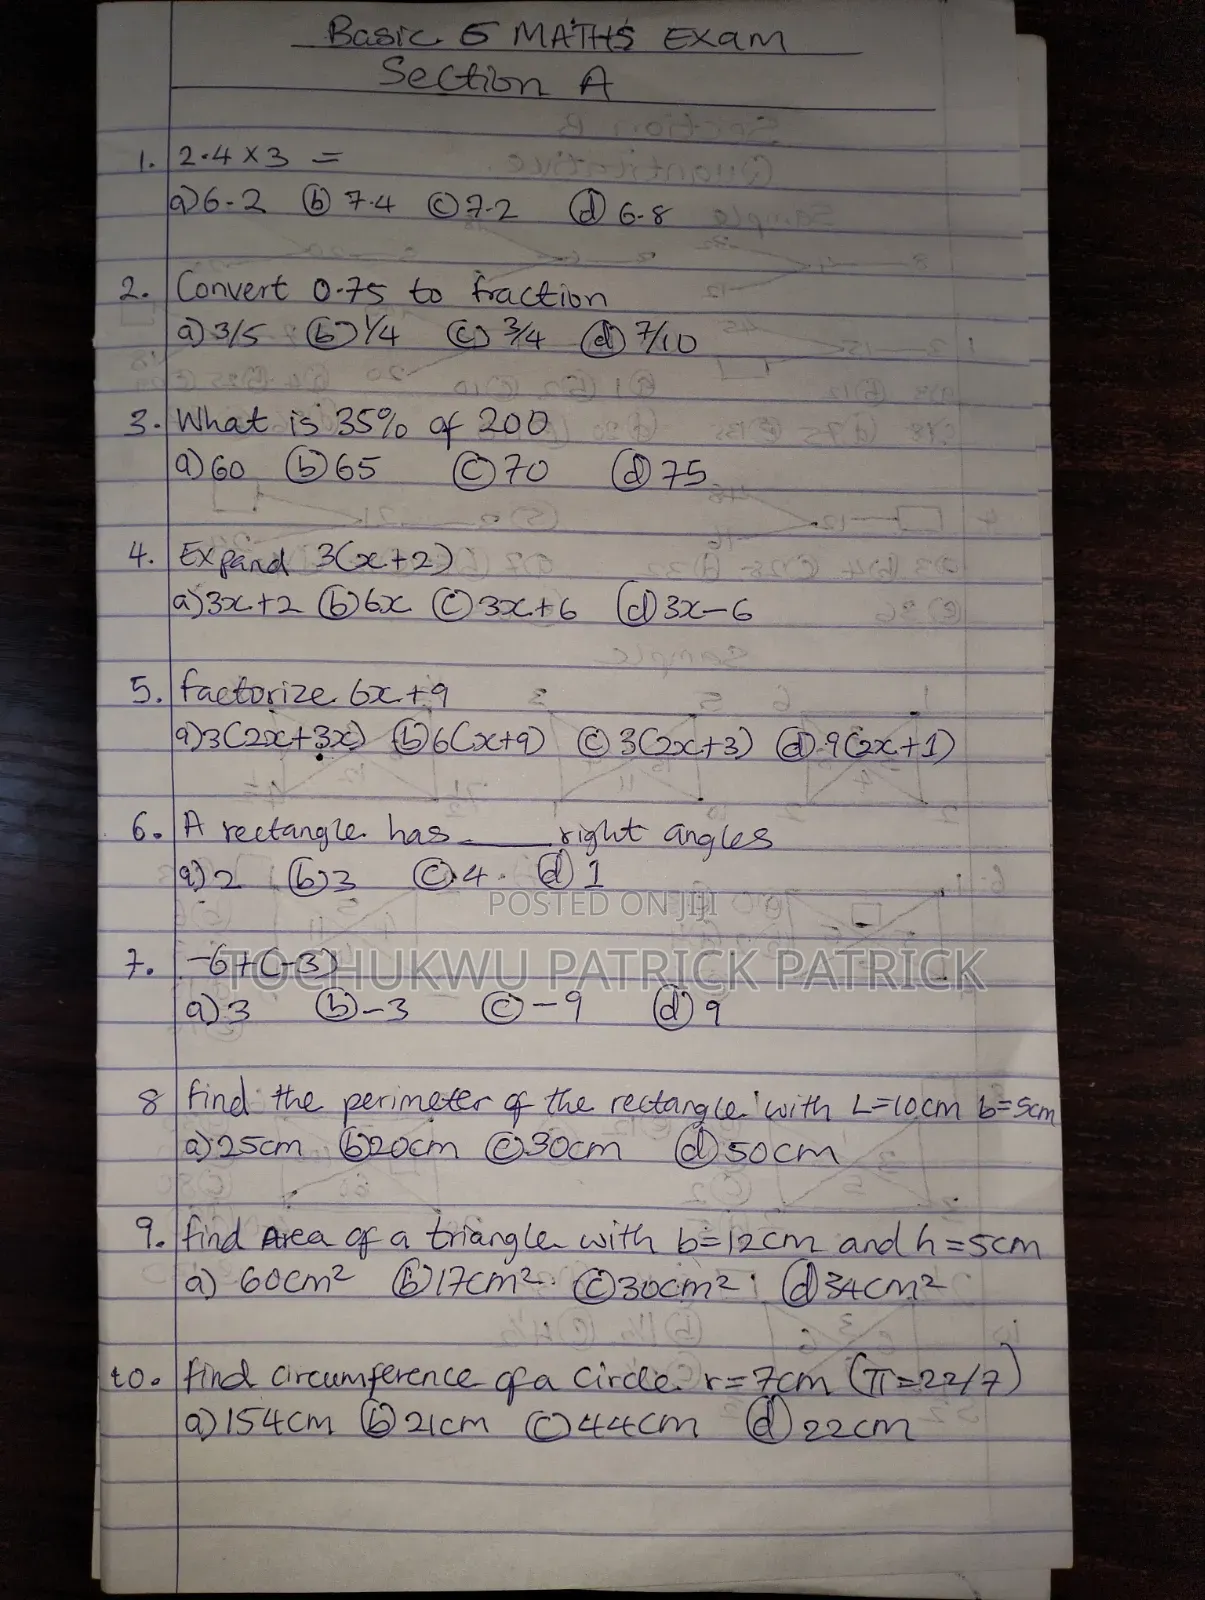 Basic 5 MATHS Exam
Section A
1. 2.4 x 3 =
a) 6.2 (b) 7.4 (c) 7.2 (d) 6.8
2. Convert 0.75 to fraction
a) 3/5 (b) 1/4 (c) 3/4 (d) 7/10
3. What is 35% of 200
a) 60 (b) 65 (c) 70 (d) 75
4. Expand 3(x+2)
a) 3x+2 (b) 6x (c) 3x+6 (d) 3x-6
5. factorize 6x+9
a) 3(2x+3x) (b) 6(x+9) (c) 3(2x+3) (d) 9(2x+1)
6. A rectangle has ____ right angles
a) 2 (b) 3 (c) 4. (d) 1
POSTED ON JIJI
7. -6+(-3)
TOCHUKWU PATRICK PATRICK
a) 3 (b) -3 (c) -9 (d) 9
8 find the perimeter of the rectangle with L=10cm b=5cm
a) 25cm (b) 20cm (c) 30cm (d) 50cm
9. find Area of a triangle with b=12cm and h=5cm
a) 60cm² (b) 17cm². (c) 30cm² (d) 34cm²
10. find circumference of a circle r=7cm (π=22/7)
a) 154cm (b) 21cm (c) 44cm (d) 22cm